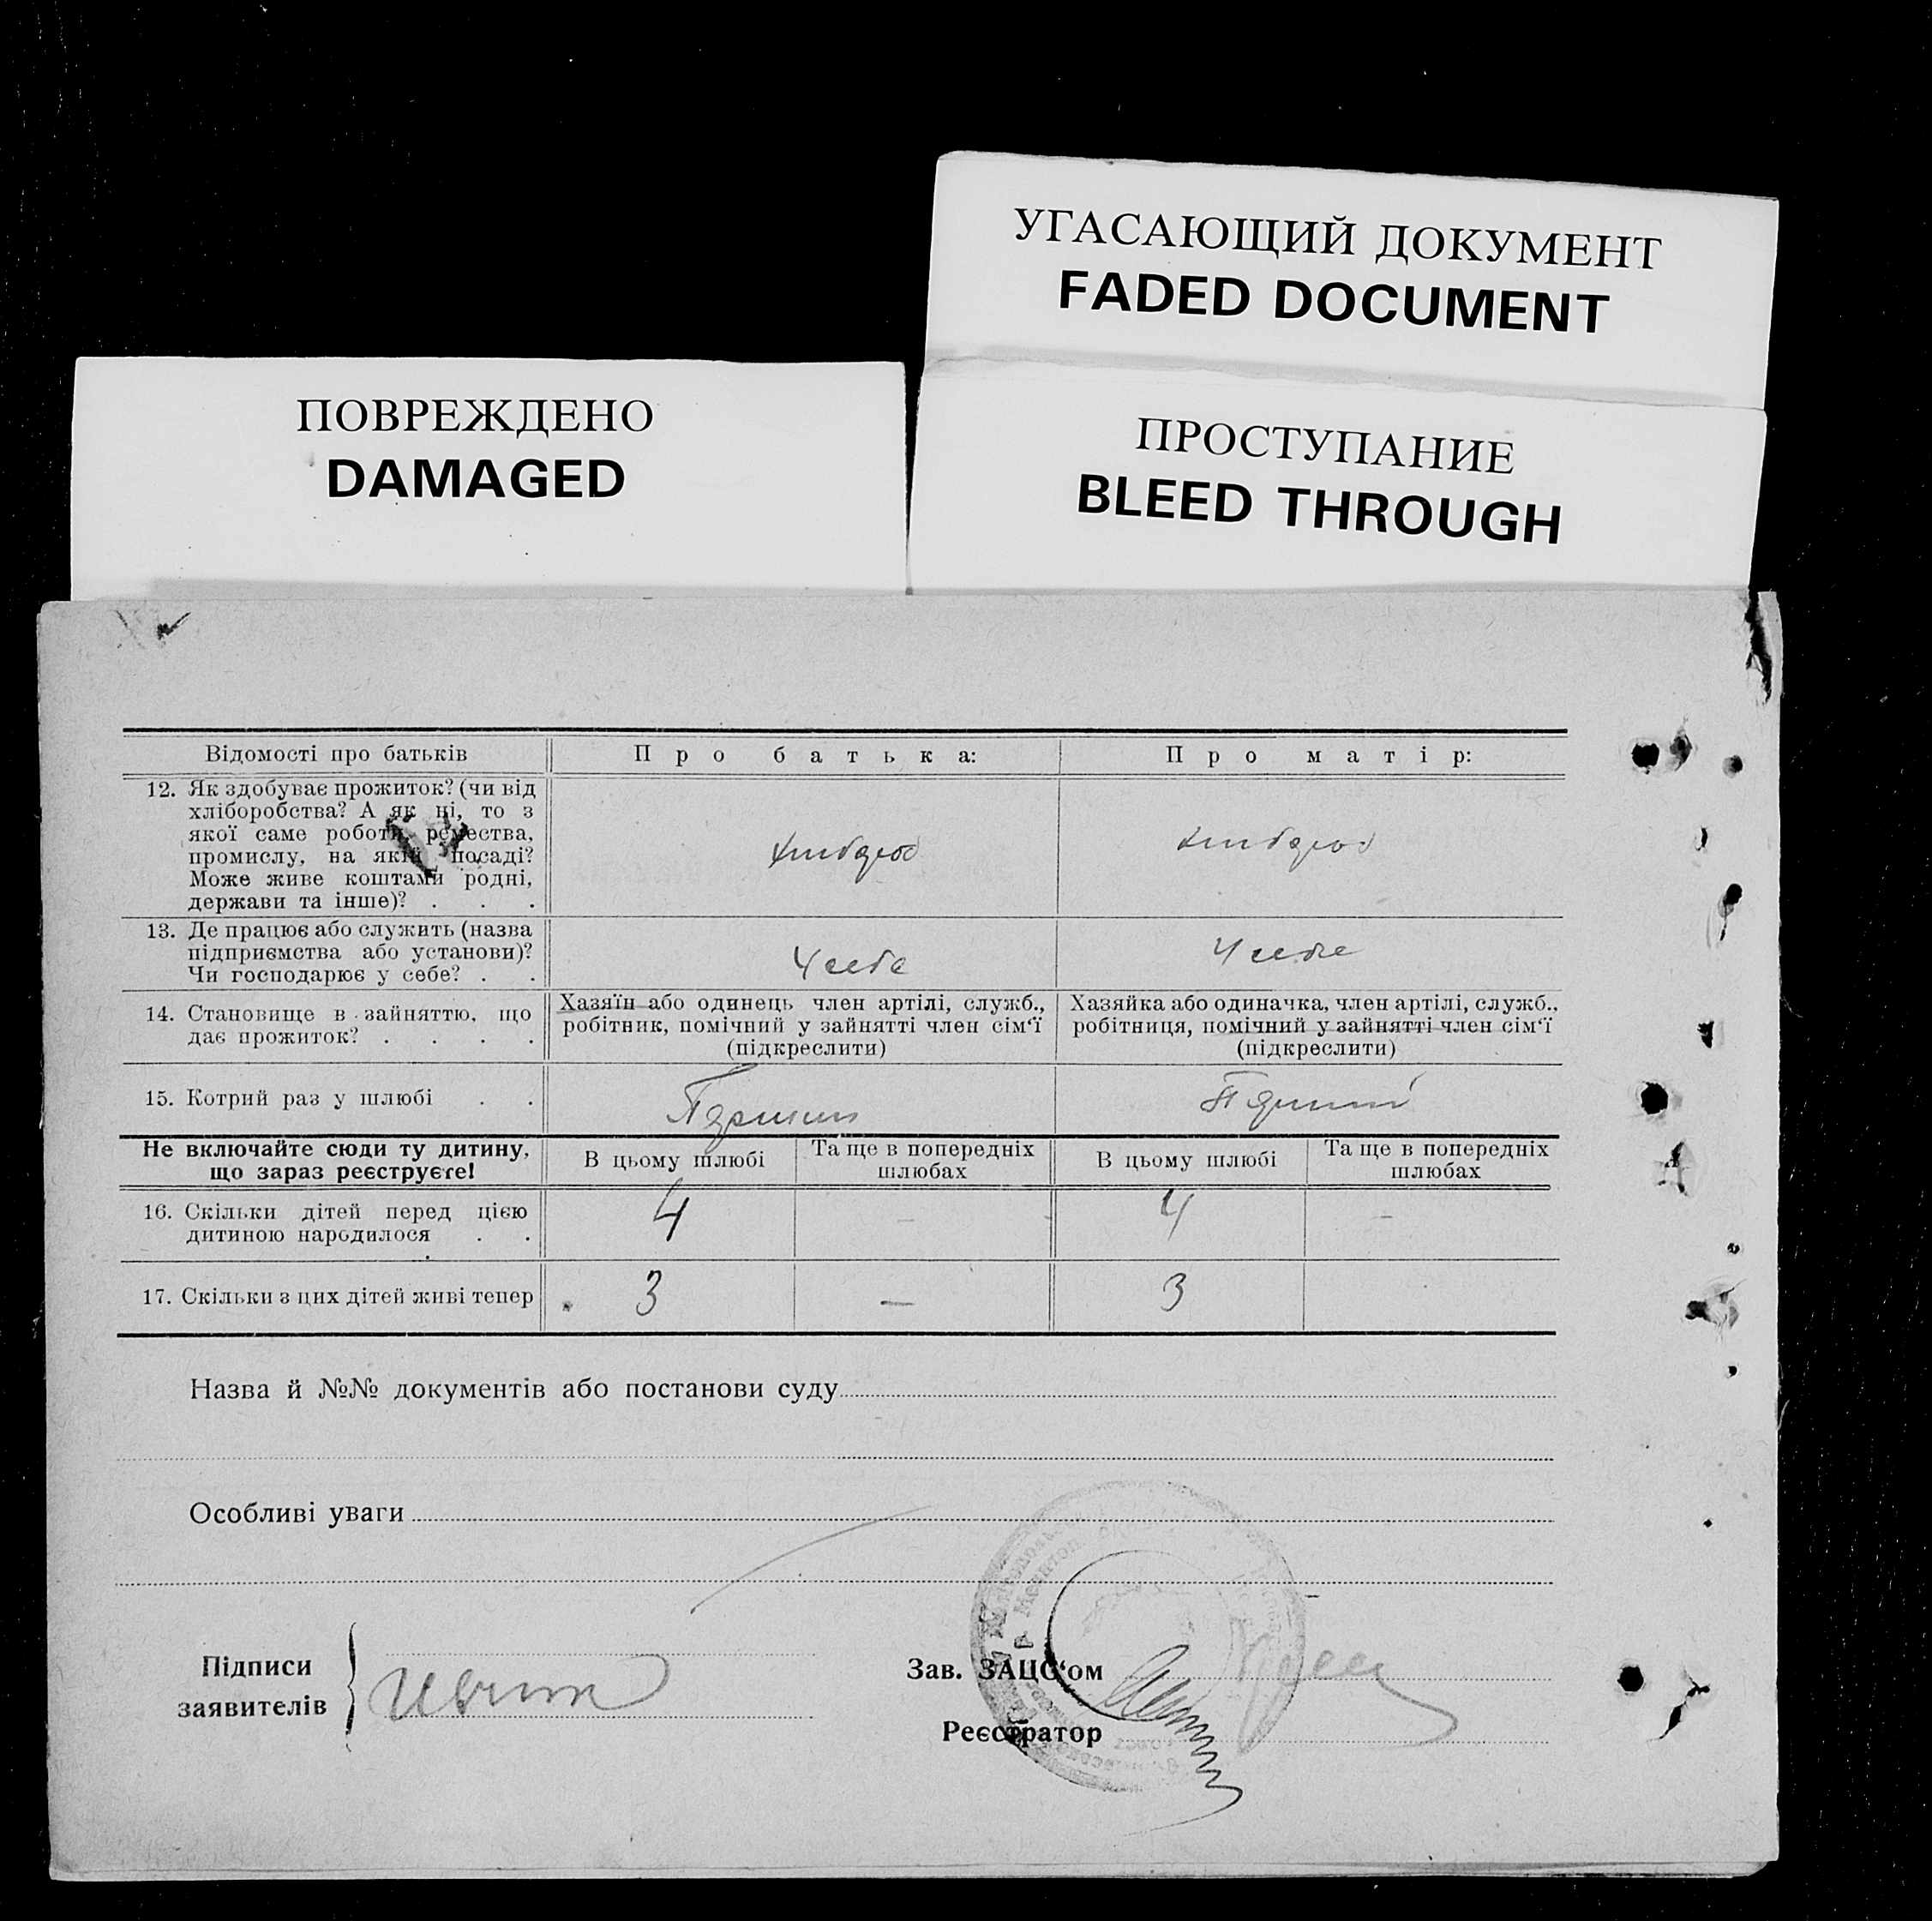 УГАСАЮЩИЙ ДОКУМЕНТ
FADED DOCUMENT
ПОВРЕЖДЕНО
DAMAGED
ПРОСТУПАНИЕ
BLEED THROUGH
Відомості про батьків
Про батька:
Про матір:
12. Як здобуває прожиток? (чи від
хліборобства? А як ні, то з
якої саме роботи, ремества,
промислу, на якій посаді?
Може живе коштами родні,
держави та інше)? . . .
хлібороб
хлібороб
13. Де працює або служить (назва
підприємства або установи)?
Чи господарює у себе? . .
У себе
У себе
14. Становище в зайняттю, що
дає прожиток? . . . .
Хазяїн або одинець член артілі, служб.,
робітник, помічний у зайнятті член сім‘ї
(підкреслити)
Хазяйка або одиначка, член артілі, служб.,
робітниця, помічний у зайнятті член сім‘ї
(підкреслити)
15. Котрий раз у шлюбі . .
Перший
Перший
Не включайте сюди ту дитину,
що зараз реєструєте!
В цьому шлюбі
Та ще в попередніх
шлюбах
В цьому шлюбі
Та ще в попередніх
шлюбах
16. Скільки дітей перед цією
дитиною народилося . .
4
–
4
–
17. Скільки з цих дітей живі тепер
3
—
3
Назва й №№ документів або постанови суду
Особливі уваги
Підписи
заявителів
Зав. ЗАЦС‘ом
Реєстратор